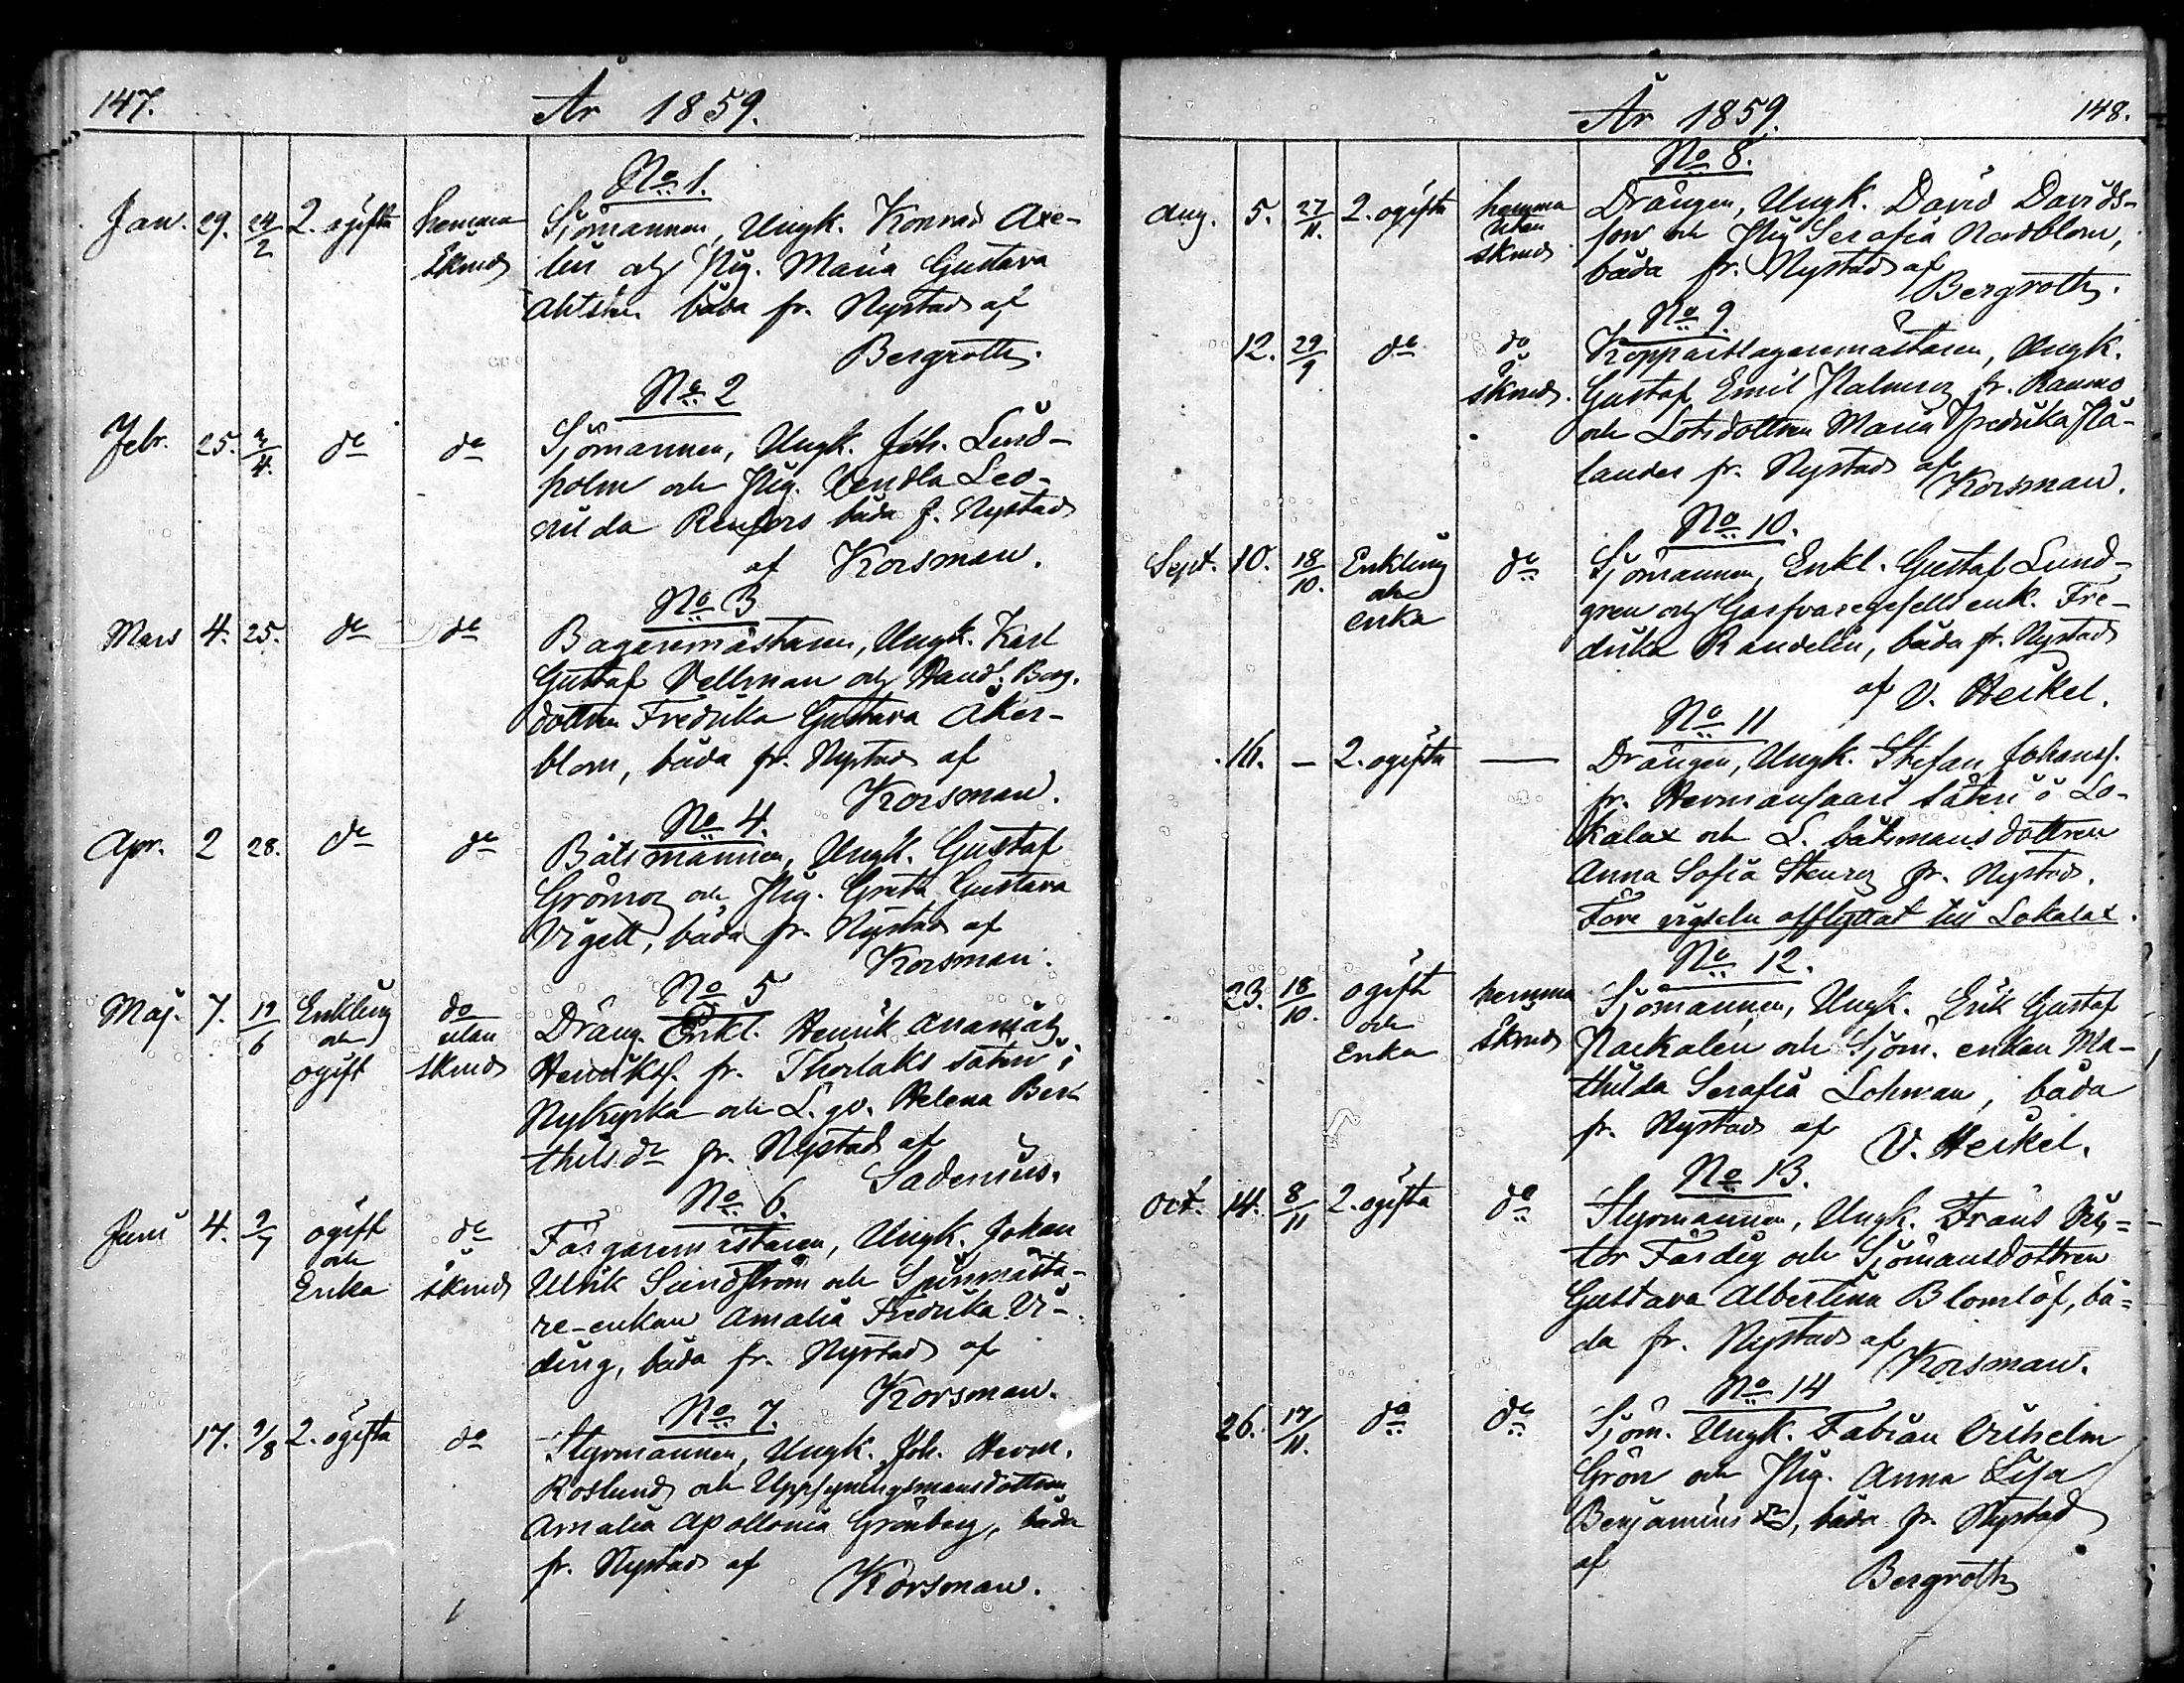 147.
År 1859.
No 1.
Jan. 29. 24/2 2. ogifta hemma Sjömannen, Ungk. Konrad Axe-
skrud lin och Pig. Maria Gustava
båda fr. Nystad af
Bergroth.
No 2
Febr. 25. 3/4. do do Sjömannen, Ungk. Joh. Lind-
holm och Pig. Vendla Leo-
nilda Renfors båda f. Nystad
af Korsman.
No 3
Mars 4. 25. do do Bagaremästaren, Ungk. Karl
Gustaf Vellman och Handl. Borg.
dottren Fredrika Gustava Åker-
blom, båda fr. Nystad af
Korsman.
No 4.
Apr. 2 28. do do Båtsmannen, Ungk. Gustaf
Grönroz och Pig. Greta Gustava
Vigell, båda fr. Nystad af
Korsman.
No 5
Maj. 7. 19/6 Enkling do Dräng. Enkl. Henrik Ananias
och utan Henriksf. fr. Thorlaks säteri i
ogift skrud Nykyrka och L. gv. Helena Ber-
thils dr fr. Nystad af
Sadenius.
No 6.
Juni 4. 9/7 ogift do Färgaremästaren, Ungk. Johan
och u Ulrik Sundström och Spinmästa-
Enka skrud re-enkan Amalia Fredrika Vi-
ding, båda fr. Nystad af
Korsman.
No 7.
17. 9/8 2. ogifta do Styrmannen, Ungk. Joh. Herm.
Roslund och Uppsyningsmansdottren
Amalia Apollonia Grönberg, båda
fr. Nystad af
Korsman.
År 1859.
148.
No 8.
Aug. 5. 27/11. 2. ogifta hemma Drängen, Ungk. David Davids-
utan son och Pig Serafia Nordblom,
skrud båda fr. Nystad af
Bergroth.
No 9.
12. 29/9 do do Kopparslagaremästaren, Ungk.
u
skrud. Gustaf Emil Palmroz fr. Raumo
och Lotsdottren Maria Fredrika Flä-
lander fr. Nystad af
Korsman.
No 10.
Sept. 10. 18/10. Enkling do Sjömannen, Enkl. Gustaf Lund-
och gren och Garfvaregesells enk. Fre-
enka drika Randelin, båda fr. Nystad
af V. Heikel.
No 11
16. — 2. ogifta — Drängen, Ungk. Stefan Johansf.
fr. Hermansaari säteri i Lo-
kalax och L. båtsmans dottren
Anna Sofia Stenroz fr. Nystad.
Före vigseln afflyttat till Lokalax.
No 12.
23. 18/10. ogift hemma Sjömannen, Ungk. Erik Gustaf
och skrud och Sjöm. enkan Ma-
Enka thilda Serafia Lohman, båda
fr. Nystad af
V. Heikel.
No 13.
Oct. 14. 8/11 2. ogifta do Styrmannen, Ungk. Frans Vik=
tor Färdig och Sjömansdottren
Gustava Albertina Blomlöf, bå=
da fr. Nystad af
Korsman.
No 14
26. 17/11. do do Sjöm. Ungk. Fabian Vilhelm
Grön och Pig. Anna Lisa
Benjamins dr, båda fr. Nystad
af
Bergroth